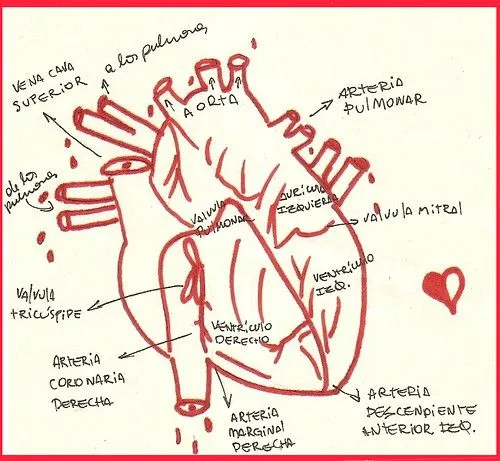 VENA CAVA
SUPERIOR
a los pulmones
AORTA
ARTERIA
PULMONAR
de los
pulmones
VALVULA
PULMONAR
AURÍCULA
IZQUIERDA
VALVULA MITRAL
VALVULA
TRICÚSPIDE
VENTRÍCULO
IZQ.
VENTRÍCULO
DERECHO
ARTERIA
CORONARIA
DERECHA
ARTERIA
MARGINAL
DERECHA
ARTERIA
DESCENDIENTE
ANTERIOR IZQ.